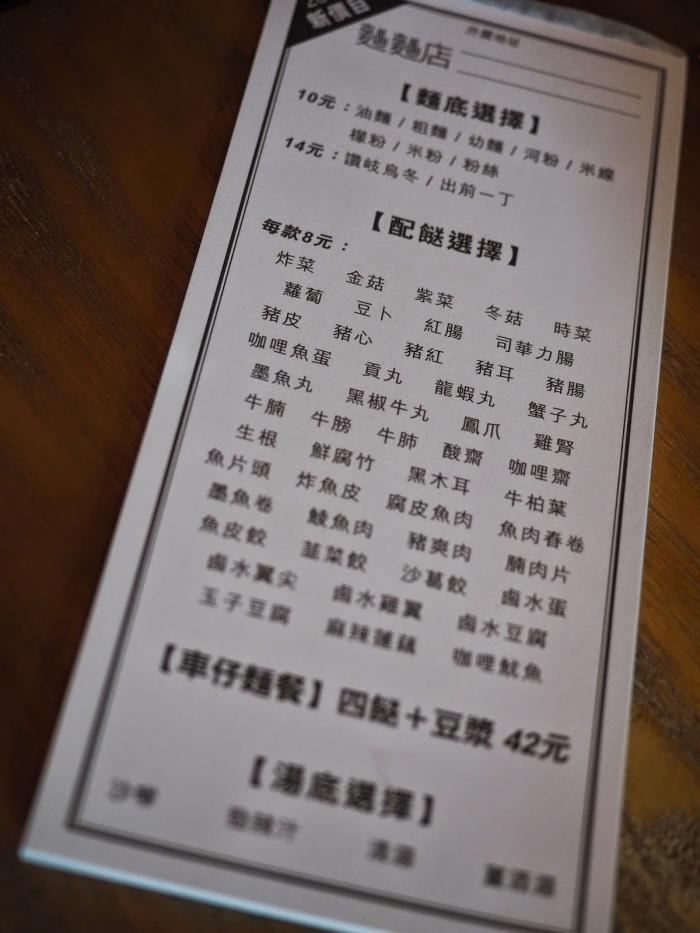 新價目
外賣地址
麵麵店
【麵底選擇】
10元：油麵 / 粗麵 / 幼麵 / 河粉 / 米線
檬粉 / 米粉 / 粉絲
14元：讚岐烏冬 / 出前一丁
【配餸選擇】
每款8元：
炸菜 金菇 紫菜 冬菇 時菜
蘿蔔 豆卜 紅腸 司華力腸
豬皮 豬心 豬紅 豬耳 豬腸
咖哩魚蛋 貢丸 龍蝦丸 蟹子丸
墨魚丸 黑椒牛丸 鳳爪 雞腎
牛腩 牛膀 牛肺 酸齋 咖哩齋
生根 鮮腐竹 黑木耳 牛柏葉
魚片頭 炸魚皮 腐皮魚肉 魚肉春卷
墨魚卷 鯪魚肉 豬爽肉 腩肉片
魚皮餃 韮菜餃 沙葛餃 鹵水蛋
鹵水翼尖 鹵水雞翼 鹵水豆腐
玉子豆腐 麻辣蓮藕 咖哩魷魚
【車仔麵餐】四餸＋豆漿 42元
【湯底選擇】
沙嗲 清湯